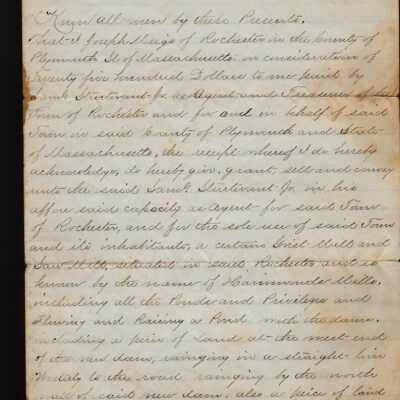 Know all men by these Presents,
that I Joseph Meigs of Rochester in the County of
Plymouth St of Massachusetts in consideration of
Twenty five hundred Dollars to me paid by
Saml Sturtevant Jr. as Agent and Treasurer of the
Town of Rochester and for and in behalf of said
Town in said County of Plymouth and State
of Massachusetts, the recept whereof I do hereby
acknowledge, do hereby give, grant, sell and convey
unto the said Saml. Sturtevant Jr. in his
affore said capacity as Agent for said Town
of Rochester, and for the sole use of said Town
and its inhabitants, a certain Grist Mill and
Saw Mill, situated in said Rochester and is
known by the name of Hammonds Mills,
including all the Ponds and Privileges and
Flowing and Raising a Pond with the dams.
including a peice of Land at the west end
of the new dam, rainging in a straight line
to the road rainging by the north
of said new dam. also a peice of land